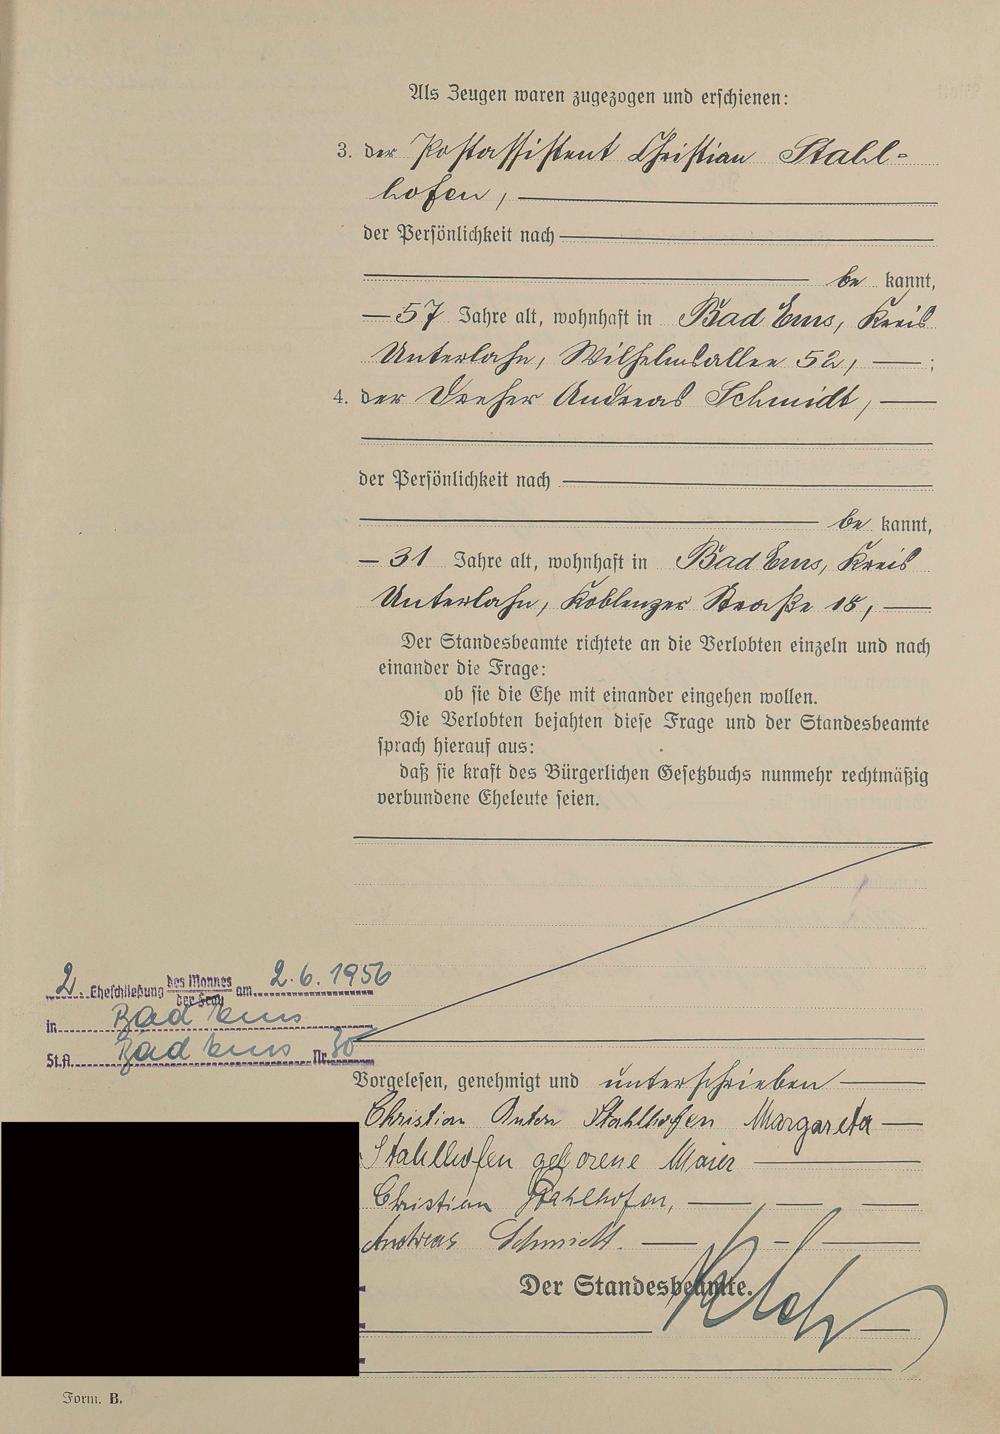 Als Zeugen waren zugezogen und erschienen:
3. der Postassistent Christian Stahl-
hofen,
der Persönlichkeit nach
be kannt,
57 Jahre alt, wohnhaft in Bad Ems, Kreis
Unterlahn, Wilhelmsallee 52, ;
4. der Dreher Andreas Schmidt,
der Persönlichkeit nach
be kannt,
31 Jahre alt, wohnhaft in Bad Ems, Kreis
Unterlahn, Koblenzer Straße 18,
Der Standesbeamte richtete an die Verlobten einzeln und nach
einander die Frage:
ob sie die Ehe mit einander eingehen wollen.
Die Verlobten bejahten diese Frage und der Standesbeamte
sprach hierauf aus:
daß sie kraft des Bürgerlichen Gesetzbuchs nunmehr rechtmäßig
verbundene Eheleute seien.
2. Eheschließung des Mannes der Frau am 2.6.1956
in Bad Ems
St.A. Bad Ems Nr. 30
Vorgelesen, genehmigt und unterschrieben
Christian Anton Stahlhofen Margareta
Stahlhofen geborene Maier
Christian Stahlhofen,
Andreas Schmidt.
Der Standesbeamte.
Form. B.